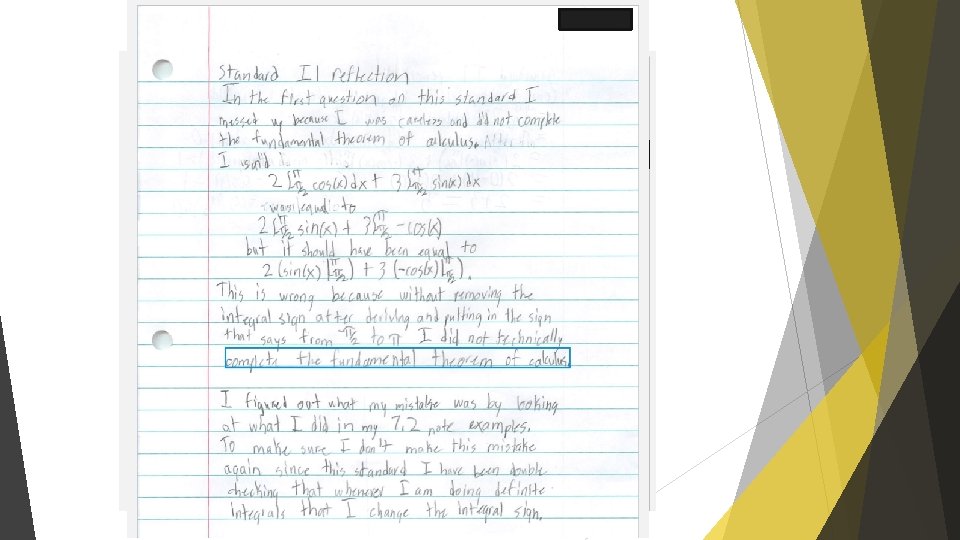 Standard I1 reflection
In the first question on this standard I
messed up because I was careless and did not complete
the fundamental theorem of calculus.
I said
2∫π/2^π cos(x)dx + 3∫π/2^π sin(x)dx
was equal to
2∫π/2^π sin(x) + 3∫π/2^π -cos(x)
but it should have been equal to
2(sin(x)|π/2^π) + 3(-cos(x)|π/2^π).
This is wrong because without removing the
integral sign after deriving and putting in the sign
that says from π/2 to π I did not technically
complete the fundamental theorem of calculus.
I figured out what my mistake was by looking
at what I did in my 7.2 note examples.
To make sure I don't make this mistake
again since this standard I have been double
checking that whenever I am doing definite
integrals that I change the integral sign.